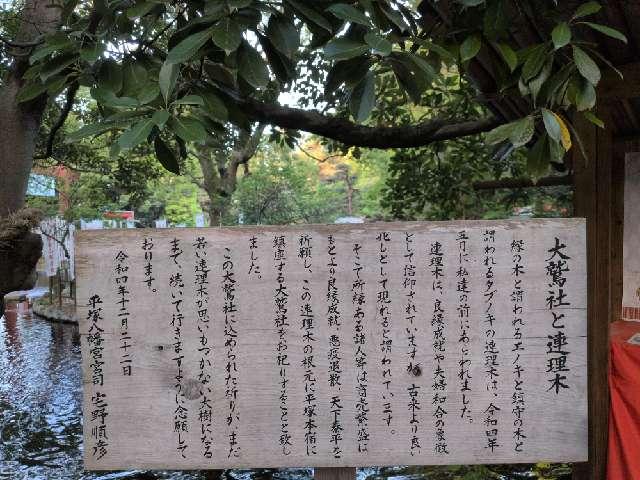 大鷲社と連理木
縁の木と謂われるエノキと鎮守の木と
謂われるタブノキの連理木は、令和四年
五月に私達の前にあらわれました。
連理木は、良縁成就や夫婦和合の象徴
として信仰されていますが、古来より良い
兆しとして現れると謂われています。
そこで所縁ある諸人等は商売繁盛は
もとより良縁成就、悪疫退散、天下泰平を
祈願し、この連理木の根元に平塚本宿に
鎮座する大鷲社をお祀りすることと致し
ました。
この大鷲社に込められた祈りが、まだ
若い連理木が思いもつかない大樹になる
まで、続いて行きますように念願して
おります。
令和四年十二月二十二日
平塚八幡宮宮司 宇野順彦